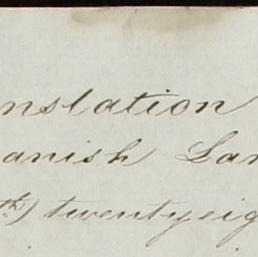 nslation
anish Lan
th) twentyeig